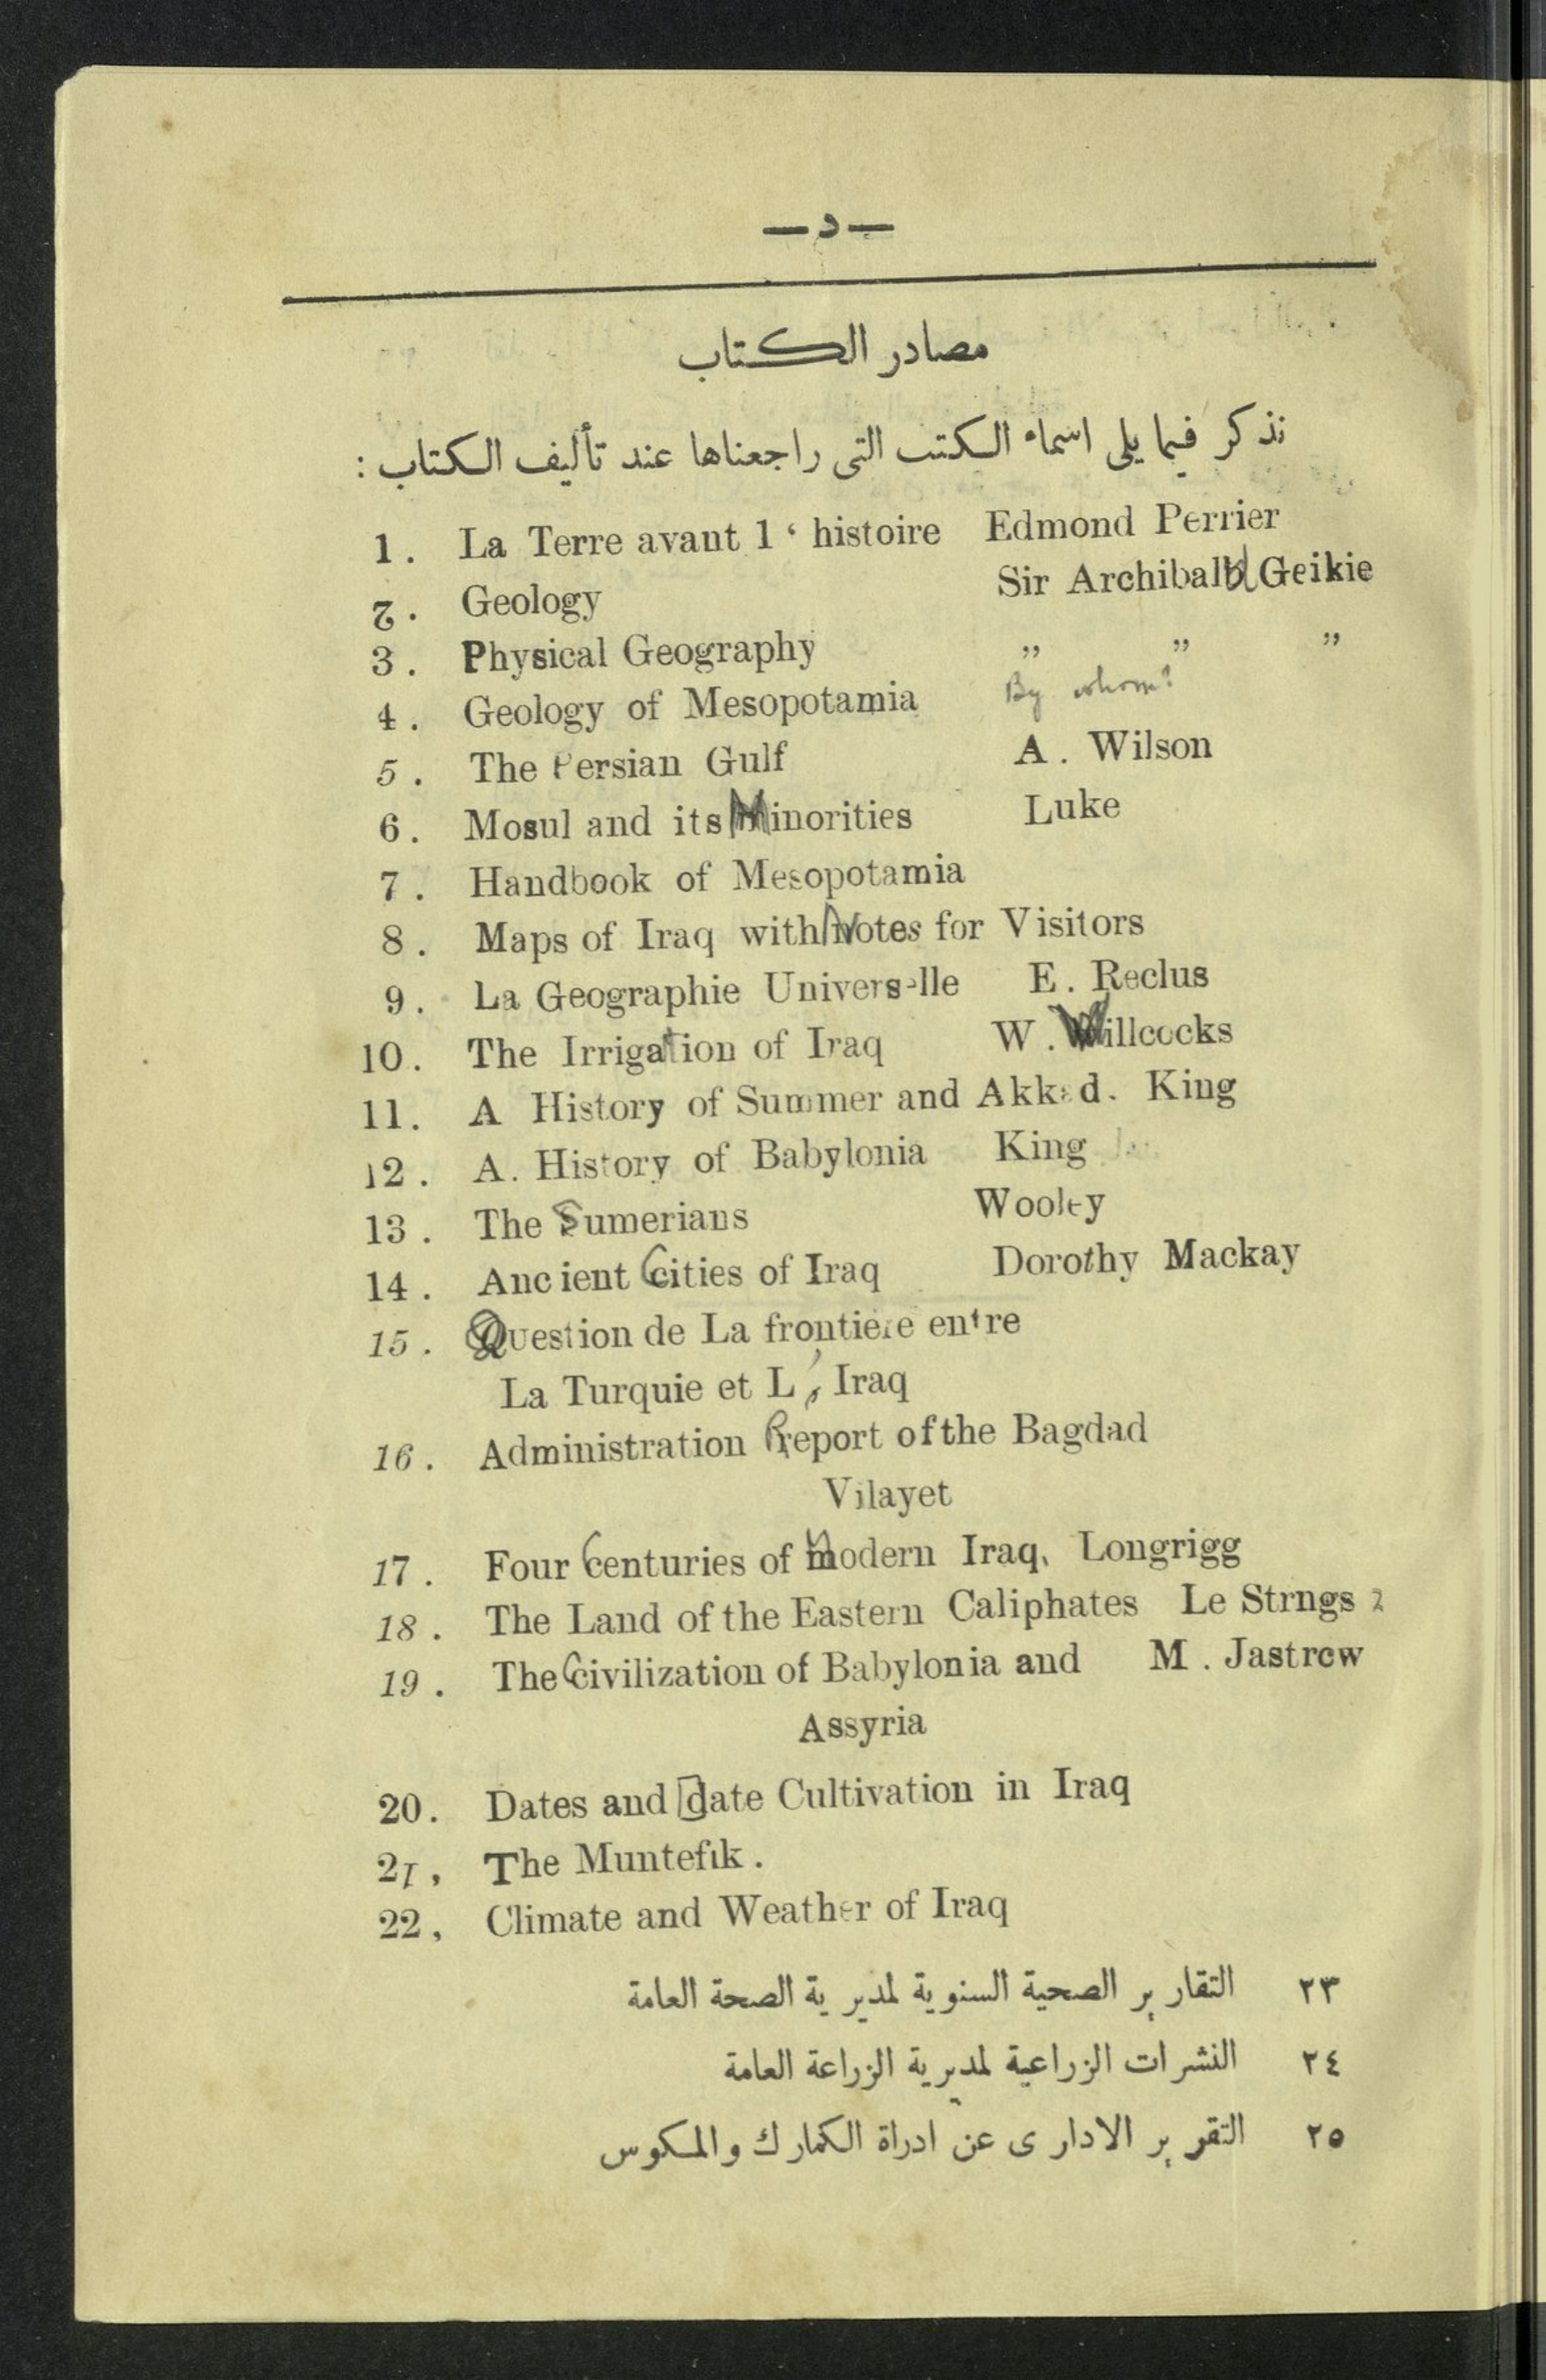 — د —
مصادر الكتاب
نذكر فيما يلى اسماء الكتب التى راجعناها عند تأليف الكتاب :
1 . La Terre avant l ‘ histoire Edmond Perrier
2 . Geology Sir Archibald Geikie
3 . Physical Geography ,, ,, ,,
4 . Geology of Mesopotamia By whom?
5 . The Persian Gulf A . Wilson
6 . Mosul and its Minorities Luke
7 . Handbook of Mesopotamia
8 . Maps of Iraq with Notes for Visitors
9 . La Geographie Universelle E . Reclus
10 . The Irrigation of Iraq W . Willcocks
11 . A History of Summer and Akkad . King
12 . A . History of Babylonia King
13 . The Sumerians Wooley
14 . Ancient Cities of Iraq Dorothy Mackay
15 . Question de La frontiere entre
La Turquie et L ' Iraq
16 . Administration Report of the Bagdad
Vilayet
17 . Four Centuries of Modern Iraq, Longrigg
18 . The Land of the Eastern Caliphates Le Strngs 2
19 . The Civilization of Babylonia and M . Jastrow
Assyria
20 . Dates and date Cultivation in Iraq
21 , The Muntefik .
22 , Climate and Weather of Iraq
٢٣ التقارير الصحية السنوية لمديرية الصحة العامة
٢٤ النشرات الزراعية لمديرية الزراعة العامة
٢٥ التقرير الادارى عن ادراة الكمارك والمكوس